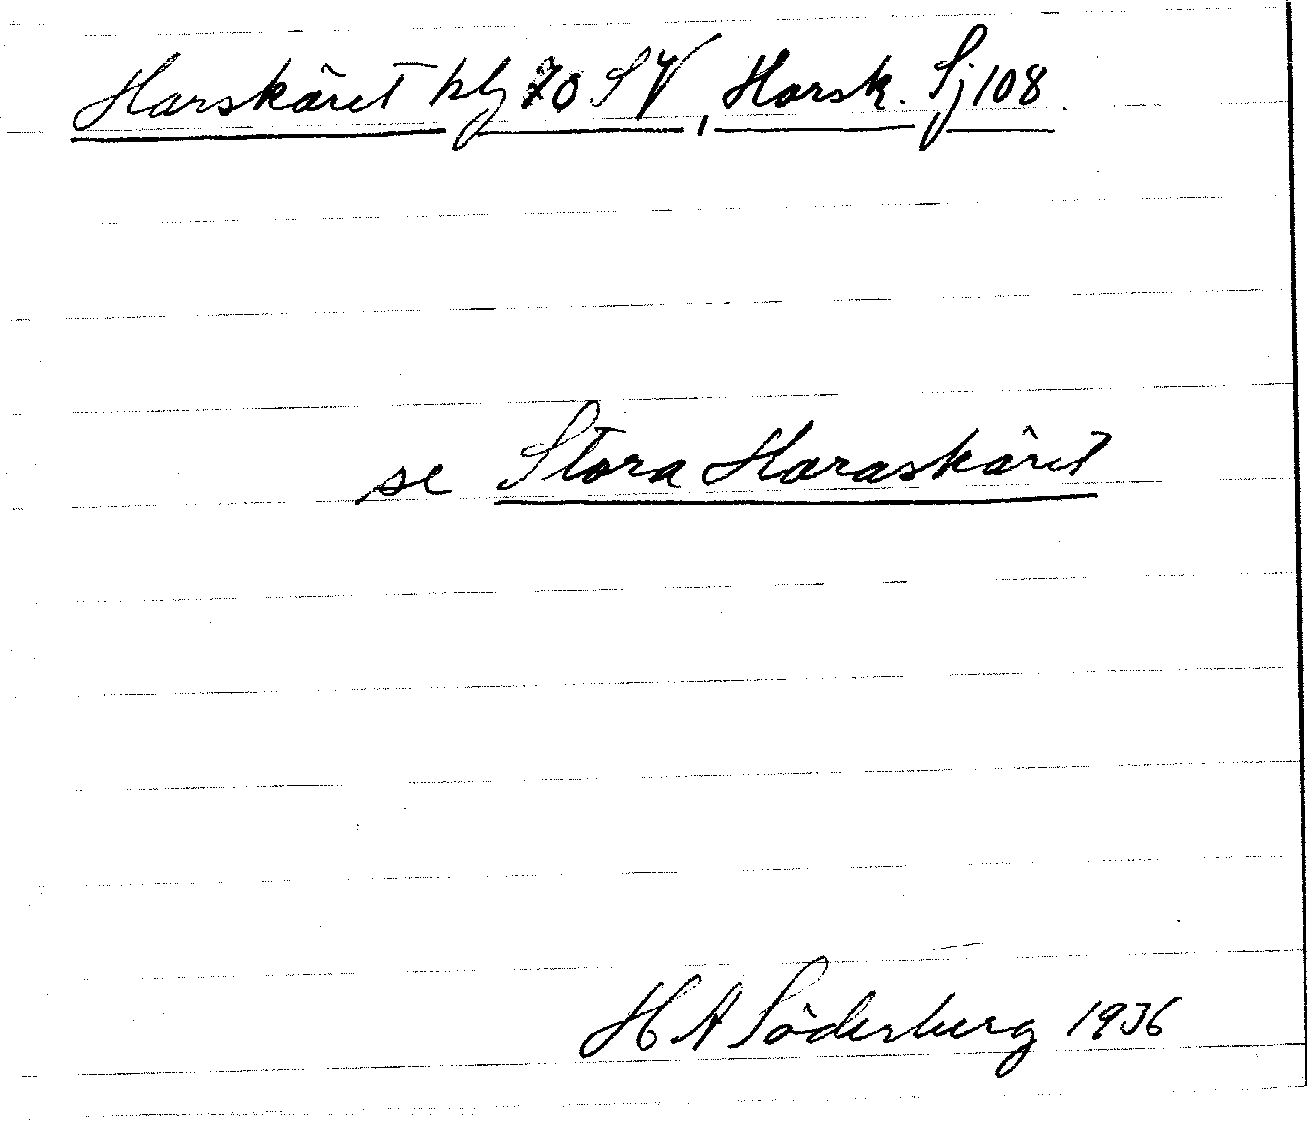 Harskäret blj 70 SV, Harsk. Sj 108
se Stora Haraskäret
H A Söderberg 1936